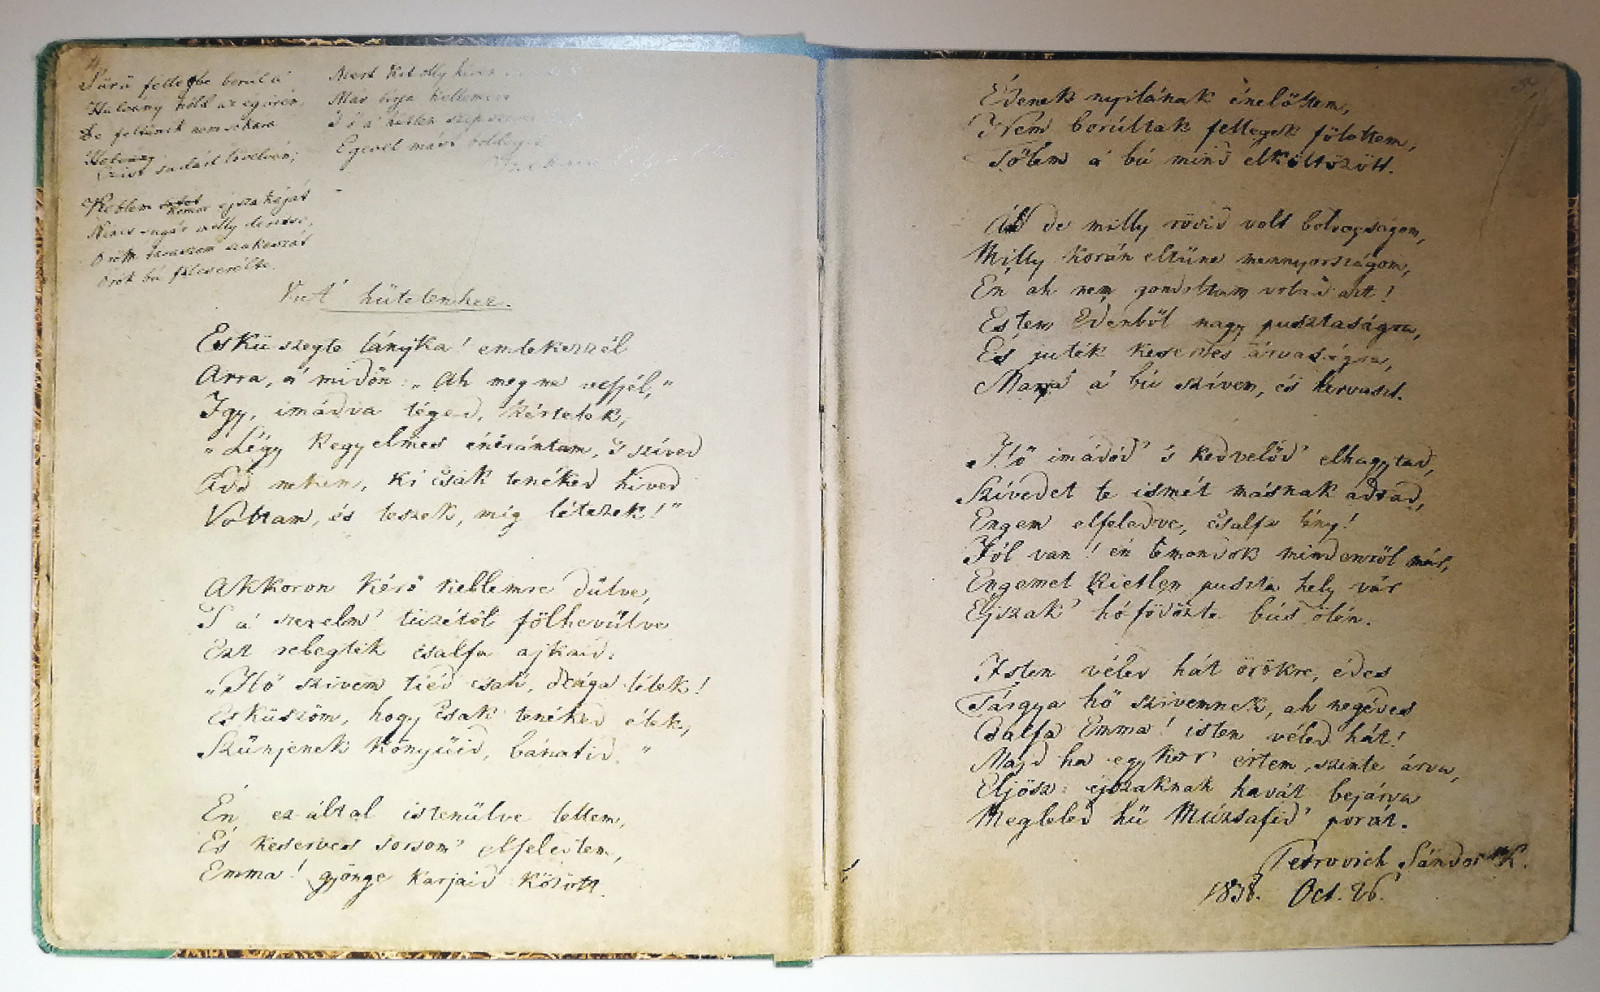 Sürü fellegbe borúl a'
Halvány hold az ég ívén,
De feltünik nem sokára
Halvány
Ezüst sudárt lövelvén;
Keblem komor éjszakáját
Nincs sugár melly derítse,
Örök tavaszom szakaszát
Örök bú fölcserélte.
Mert kit olly híven
Már bírja kellemeit
'S a' hűtlen szép szeme
Egével mást boldogít
A' hütelenhez.
Esküszegte lányka! emlekezzél
Arra, a' midőn: „Ah megne vessél,"
Igy, imádva téged, kértelek,
„Légy kegyelmes éniránтam, 's szíved
Add nekem, ki csak tenéked híved
Voltam, és leszek, míg létezek!"
Akkoron kérő keblemre dülve,
'S a' szerelm' tüzétől fölhevülve
Ezt rebegték csalfa ajkaid:
„Hő szivem tiéd csak, drága lélek!
Esküszöm, hogy csak tenéked élek,
Szünjenek könyűid, bánatid."
Én ez által istenülve lettem,
És keserves sorsom' elfeledtem,
Emma! gyönge karjaid között.
Édenek nyílának énelőttem,
Nem borúltak fellegek fölöttem,
Tőlem a' bú mind elköltözött.
Ah de milly rövid volt boldogságom,
Milly korán eltüne mennyországom,
Én ah nem gondoltam volna azt!
Estem Edenből nagy pusztaságra,
És juték keserves árvaságra,
Marja a' bú szívem, és hervaszt.
Hő imádód' 's kedvelőd' elhagytad,
Szívedet te ismét másnak adtad,
Engem elfeledve, csalfa lány!
Jól van! én lemondok mindenről már,
Engemet kietlen puszta hely vár
Éjszak' hófödözte bús ölén.
Isten véled hát örökre, édes
Tárgya hő szivemnek, ah negédes
Csalfa Emma! isten véled hát!
Majd ha egykor értem, szinte árva,
Eljősz: éjszaknak havát bejárva
Megleled hű Múzsafid' porát.
Petrovich Sándor mk.
1838. Oct. 26.